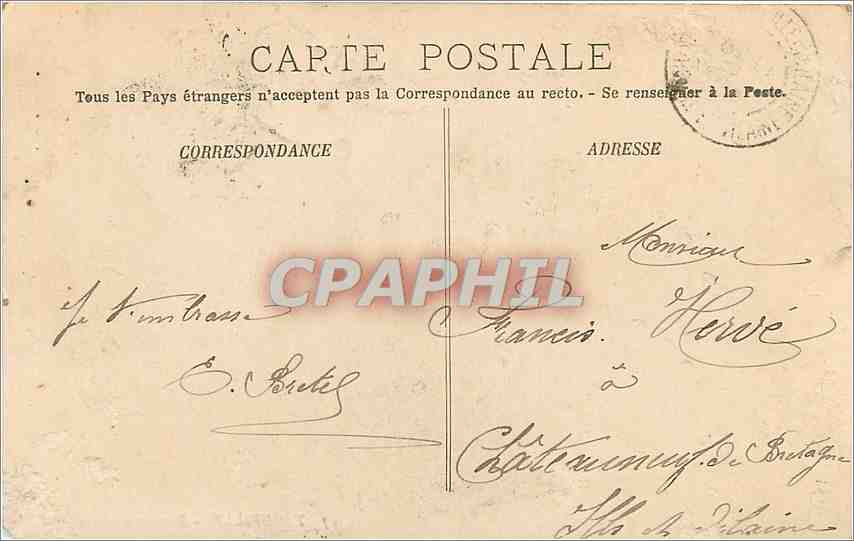 CARTE POSTALE
Tous les Pays étrangers n'acceptent pas la Correspondance au recto. - Se renseigner à la Poste.
CORRESPONDANCE
Je t'embrasse
E. Bretel
ADRESSE
Monsieur
Francis. Hervé
à
Châteauneuf. de Bretagne
Ille et Vilaine
CPAPHIL